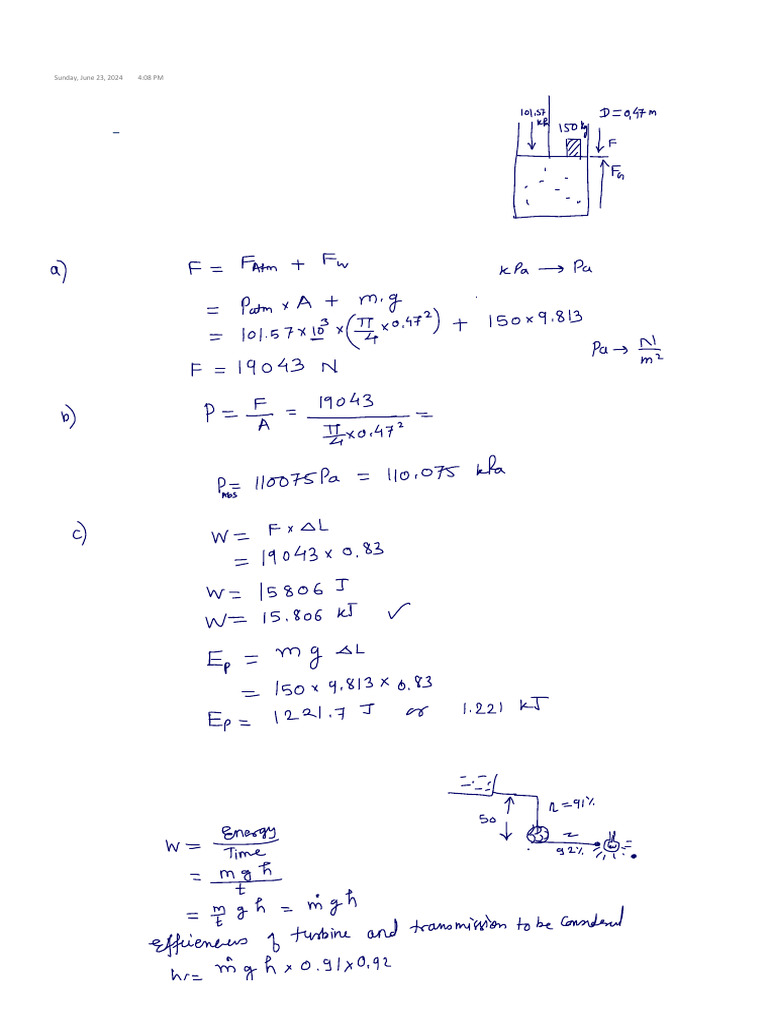 Sunday, June 23, 2024 4:08 PM
101.57 kPa
150 kg
D = 0,47 m
F
FG
a) F = FAtm + Fw
kPa → Pa
= Patm × A + m.g
= 101.57 × 10³ × (π/4 × 0.47²) + 150 × 9.813
Pa → N/m²
F = 19043 N
b) P = F/A = 19043 / (π/4 × 0.47²) =
PAbs = 110075 Pa = 110.075 kPa
c) W = F × ΔL
= 19043 × 0.83
W = 15806 J
W = 15.806 kJ ✓
Ep = m g ΔL
= 150 × 9.813 × 0.83
Ep = 1221.7 J or 1.221 kJ
50
η = 91%
η
92%
W = Energy / Time
= m g h / t
= m/t g h = ṁ g h
Efficiencies of turbine and transmission to be considered
= ṁ g h × 0.91 × 0.92